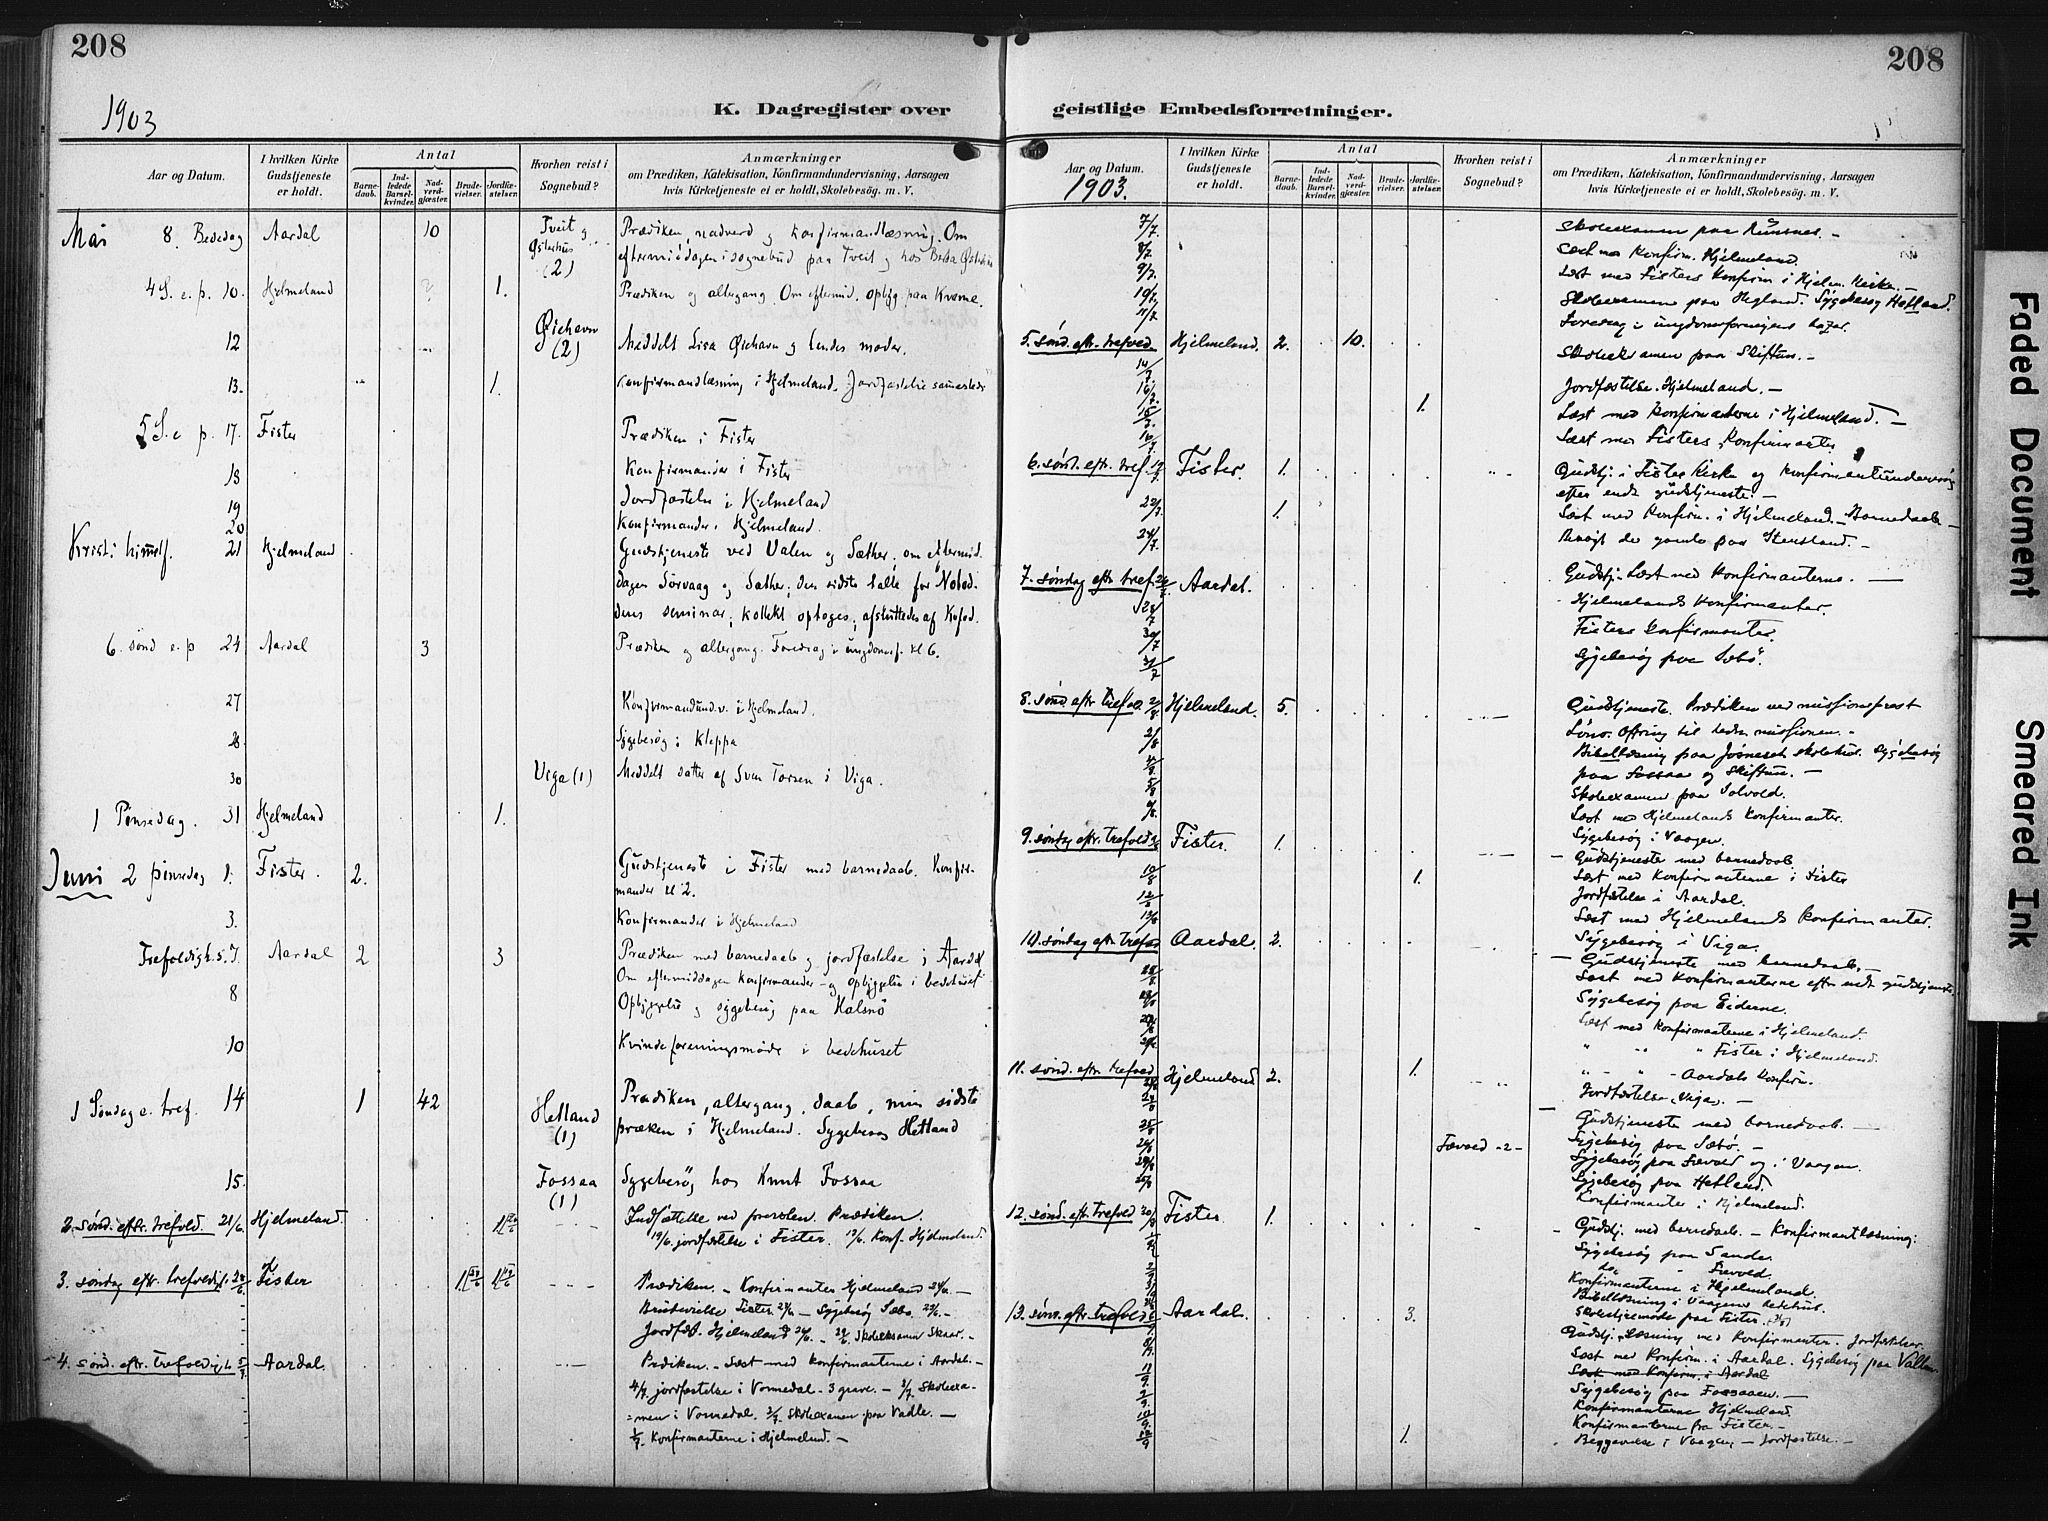 208
1903
K. Dagregister over
Aar og Datum.
I hvilken Kirke Gudstjeneste er holdt.
Antal
Barnedaab.
Indledede Barselkvinder.
Nadverdgjæster.
Brudevielser.
Jordfæstelser.
Hvorhen reist i Sognebud?
Anmærkninger
om Prædiken, Katekisation, Konfirmandundervisning, Aarsagen
hvis Kirketjeneste ei er holdt, Skolebesøg. m. V.
Mai 8. Bededag Aardal 10 Tveit og Østerhus (2) Prædiken, nadverd og konfirmandlæsning. Om
eftermiddagen i sognebud paa Tveit og hos
4 S. e. p. 10. Hjelmeland 1. Prædiken og altergang Om eftermid. opbyg. paa Kvame.
12 Øiehavn (2) Meddelt Lisa Øiehavn og hendes moder.
13. 1. Konfirmandlæsning i Hjelmeland. Jordfæstelse sammesteds
5 S. e p. 17. Fister Prædiken i Fister
18 Konfirmander i Fister
19 Jordfæstelse i Hjelmeland
20 Konfirmander i Hjelmeland.
Kristi himmelf. 21 Hjelmeland Gudstjeneste ved Valen og Sæther; om eftermid.
dagen Sørvaag og Sæther; den sidste talte for "Notod.
dens seminar; kollekt optoges; afsluttedes af Kofod.
6. sønd e. p 24 Aardal 3 Prædiken og altergang. Foredrag i ungdomsf. kl 6.
27 Konfirmandund.v. i Hjelmeland.
28. Sygebesøg i Kleppa
30 Viga (1) Meddelt datter af Sven Torsen i Viga.
1 Pinsedag. 31 Hjelmeland 1.
Juni 2 pinsedag 1. Fister. 2. Gudstjeneste i Fister med barnedaab. Konfir-
mander kl 2.
3. Konfirmander i Hjelmeland
Trefoldigh. s. 7. Aardal 2 3 Prædiken med barnedaab og jordfæstelse i Aardal
Om eftermiddagen konfirmander og opbyggelse i bedehuset
8 Opbyggelse og sygebesøg paa Halsnø
10 Kvindeforeningsmøde i bedehuset
1 Søndag e. tref. 14 1 42 Hetland (1) Prædiken, altergang, daab, min sidste
præken i Hjelmeland. Sygebesøg Hetland
15. Fossaa (1) Sygebesøg hos Knut Fossaa
2. sønd. eftr. trefold. 21/6. Hjelmeland. 1 Indsættelse ved provsten. Prædiken.
19/6. jordfæstelse i Fister. Konf. Hjelmeland.
3. søndag eftr. trefoldigh. 28/6. Fister 1 1 Prædiken. - Konfirmanter Hjelmeland 24/6. -
Brudevielse Fister. - Sygebesøg Sæbø. -
Jordfæst. Hjelmeland. - Skoleeksamen Skaar. -
4. sønd. eftr. trefoldigh. 5/7. Aardal. Prædiken. - Læst med konfirmanterne i Aardal. -
4/7. jordfæstelse i Vormedal - 3 grave. - 2/7. Skoleexa-
=men i Vormedal. Skoleexamen paa Vadla. -
Konfirmanterne i Hjelmeland. -
208
geistlige Embedsforretninger.
Aar og Datum.
1903.
I hvilken Kirke Gudstjeneste er holdt.
Antal
Barnedaab.
Indledede Barselkvinder.
Nadverdgjæster.
Brudevielser.
Jordfæstelser.
Hvorhen reist i Sognebud?
Anmærkninger
om Prædiken, Katekisation, Konfirmandundervisning, Aarsagen
hvis Kirketjeneste ei er holdt, Skolebesøg. m. V.
7/7. Skoleexamen paa -
8/7 Læst med Konfirm. Hjelmeland.
9/7. Læst med Fisters Konfirm i Hjelm. Kirke. -
10/7. Skoleexamen paa Hegland. Sygebesøg Hetland.
11/7 Foredrag i ungdomsforeningens bazar.
5. sønd. eftr. trefold. Hjelmeland. 2. 10. Skoleeksamen paa Skiftun. -
14/7 Jordfæstelse. Hjelmeland. -
1. Læst med konfirmanterne i Hjelmeland. -
Læst med Fisters Konfirmanter
6. sønd. eftr. tref. 19/7. Fister. 1. Gudstj. i Fister Kirke og konfirmantundervisng
efter endt gudstjeneste. -
22/7 1. Læst med Konfirm. i Hjelmeland. - Barnedaab -
24/7. Besøgt de gamle paa Steinsland. -
7. søndag eftr. tref. 26/7 Aardal. Gudstj. - Læst med konfirmanterne. -
28/7 Hjelmelands konfirmanter.
30/7 Fisters konfirmanter.
31/7 Sygebesøg paa Sæbø.
8. sønd. eftr. trefol. 2/8. Hjelmeland. 5. Gudstjeneste. Prædiken ved missionsprest
Lønø. Ofring til hedn. missionen. -
Bibellæsning paa Jøsneset skolehus. Sygebesøg
paa Fossaa og Skiftun. -
5/8 Skoleexamen paa Solvold.
6/8. Læst med Hjelmelands Konfirmanter.
Sygebesøg i Vaagen.
9. søndag eftr. trefold Fister. 1. - Gudstjeneste med barnedaab
10/8 1. Læst med Konfirmanterne i Fister
12/8 Jordfæstelse i Aardal.
13/8 Læst med Hjelmelands Konfirmanter.
Sygebesøg i Viga.
10. søndag eftr. trefol Aardal. 2. - Gudstjeneste med barnedaab. -
Læst med Konfirmanterne eftr endt gudstjeneste.
Sygebesøg paa Eiderne.
Læst med konfirmanterne i Hjelmeland.
" " " Fister i Hjelmeland.
" - " - Aardals konfirm.
11. sønd. eftr. trefold Hjelmeland 2. 1. Jordfæstelse, Viga. -
Gudstjeneste med barnedaab. -
Sygebesøg paa Sæbø. -
Fævold -2- Sygebesøg paa Fævold og i Vaagen.
Sygebesøg paa Hetland.
Konfirmanter i Hjelmeland.
12. sønd. eftr. trefold 30/8 Fister. 1. - Gudstj. med barnedaab. - Konfirmantlæsning:
Sygebesøg paa Sande.
do " Fævold.
Konfirmanterne i Hjelmeland.
Bibellæsning i Vaagens bedehus.
Skolestyremøde paa Fister.
13. sønd. eftr. trefold Aardal. 3. Gudstj. Læsning med Konfirmanter. Jordfæstelser.
Læst med Konfirm. i Aardal. Sygebesøg paa
Læst med Konfirm. i Aardal
Sygebesøg paa Fossaaen. -
Konfirmanterne Hjelmeland
Konfirmanterne fra Fister. -
12/9 1. Begravelse i Vaagen - Jordfæstelse. -
Faded Document
Smeared Ink